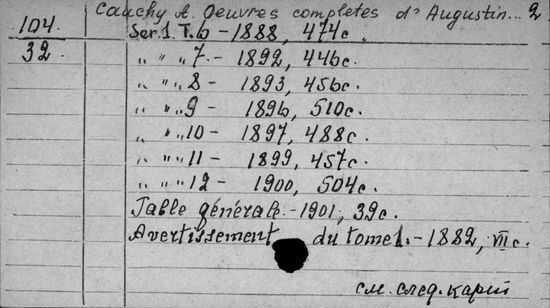 Cauchy A. Oeuvres completes d'Augustin... 2
104. Ser. 1. T. 6 - 1888, 474c.
32. „ „ „ 7 - 1892, 446c.
„ „ „ 8 - 1893, 456c.
„ „ „ 9 - 1896, 510c.
„ „ „ 10 - 1897, 488c.
„ „ „ 11 - 1899, 457c.
„ „ „ 12 - 1900, 504c.
Table générale. - 1901, 39c.
Avertissement du tome 1. - 1882, VII c.
см. след. карт